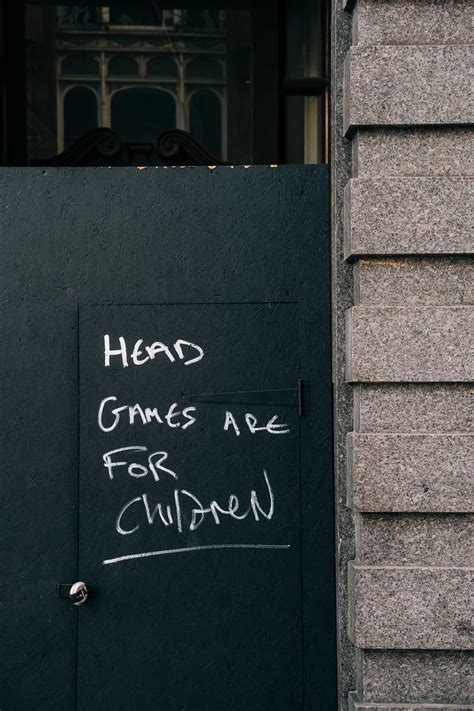 HEAD
GAMES ARE
FOR
ChilDreN